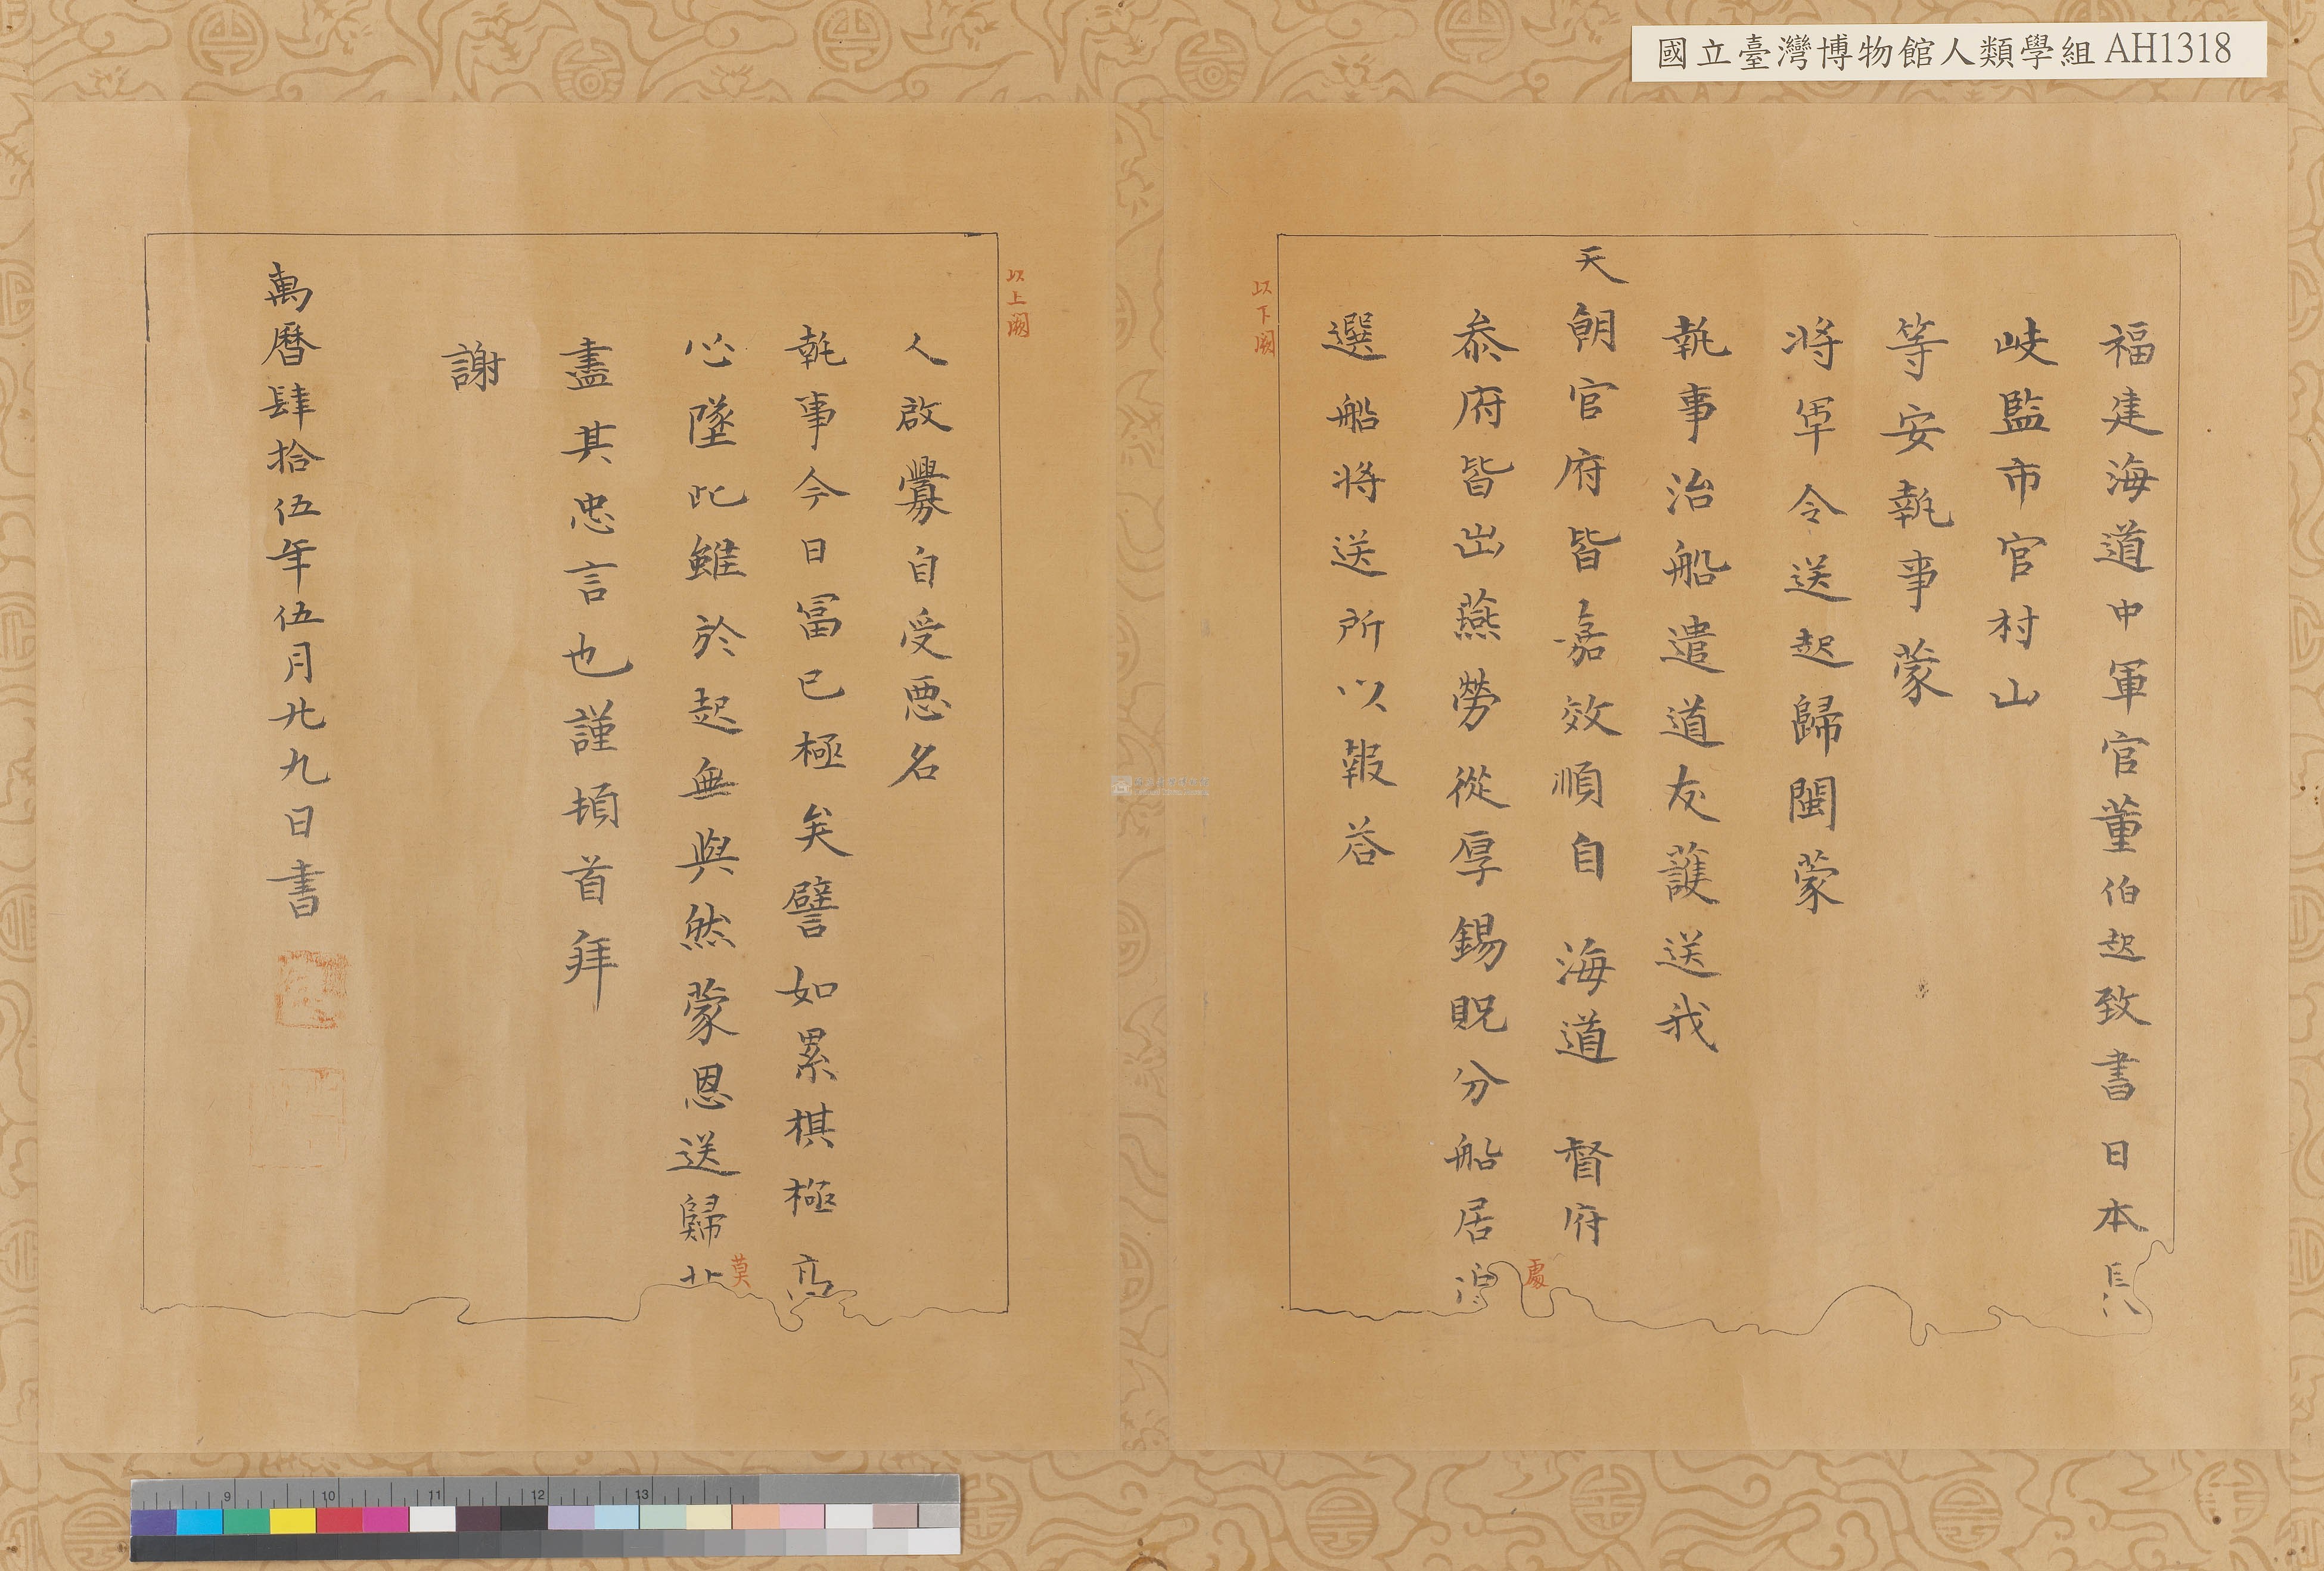 國立臺灣博物館人類學組 AH1318
福建海道中軍官董伯起致書日本長
岐監市官村山
等安執事蒙
將軍令送起歸閩蒙
執事治船遣道友護送我
天朝官府皆嘉效順自 海道 督府
叅府皆出燕勞從厚錫貺分船居
處
選船將送所以報答
以下闕
以上闕
人啟釁自受惡名
執事今日富已極矣譬如累棋極高
心墜此雖於起無與然蒙恩送歸
莫
盡其忠言也謹頓首拜
謝
萬曆肆拾伍年伍月廿九日書
9 10 11 12 13